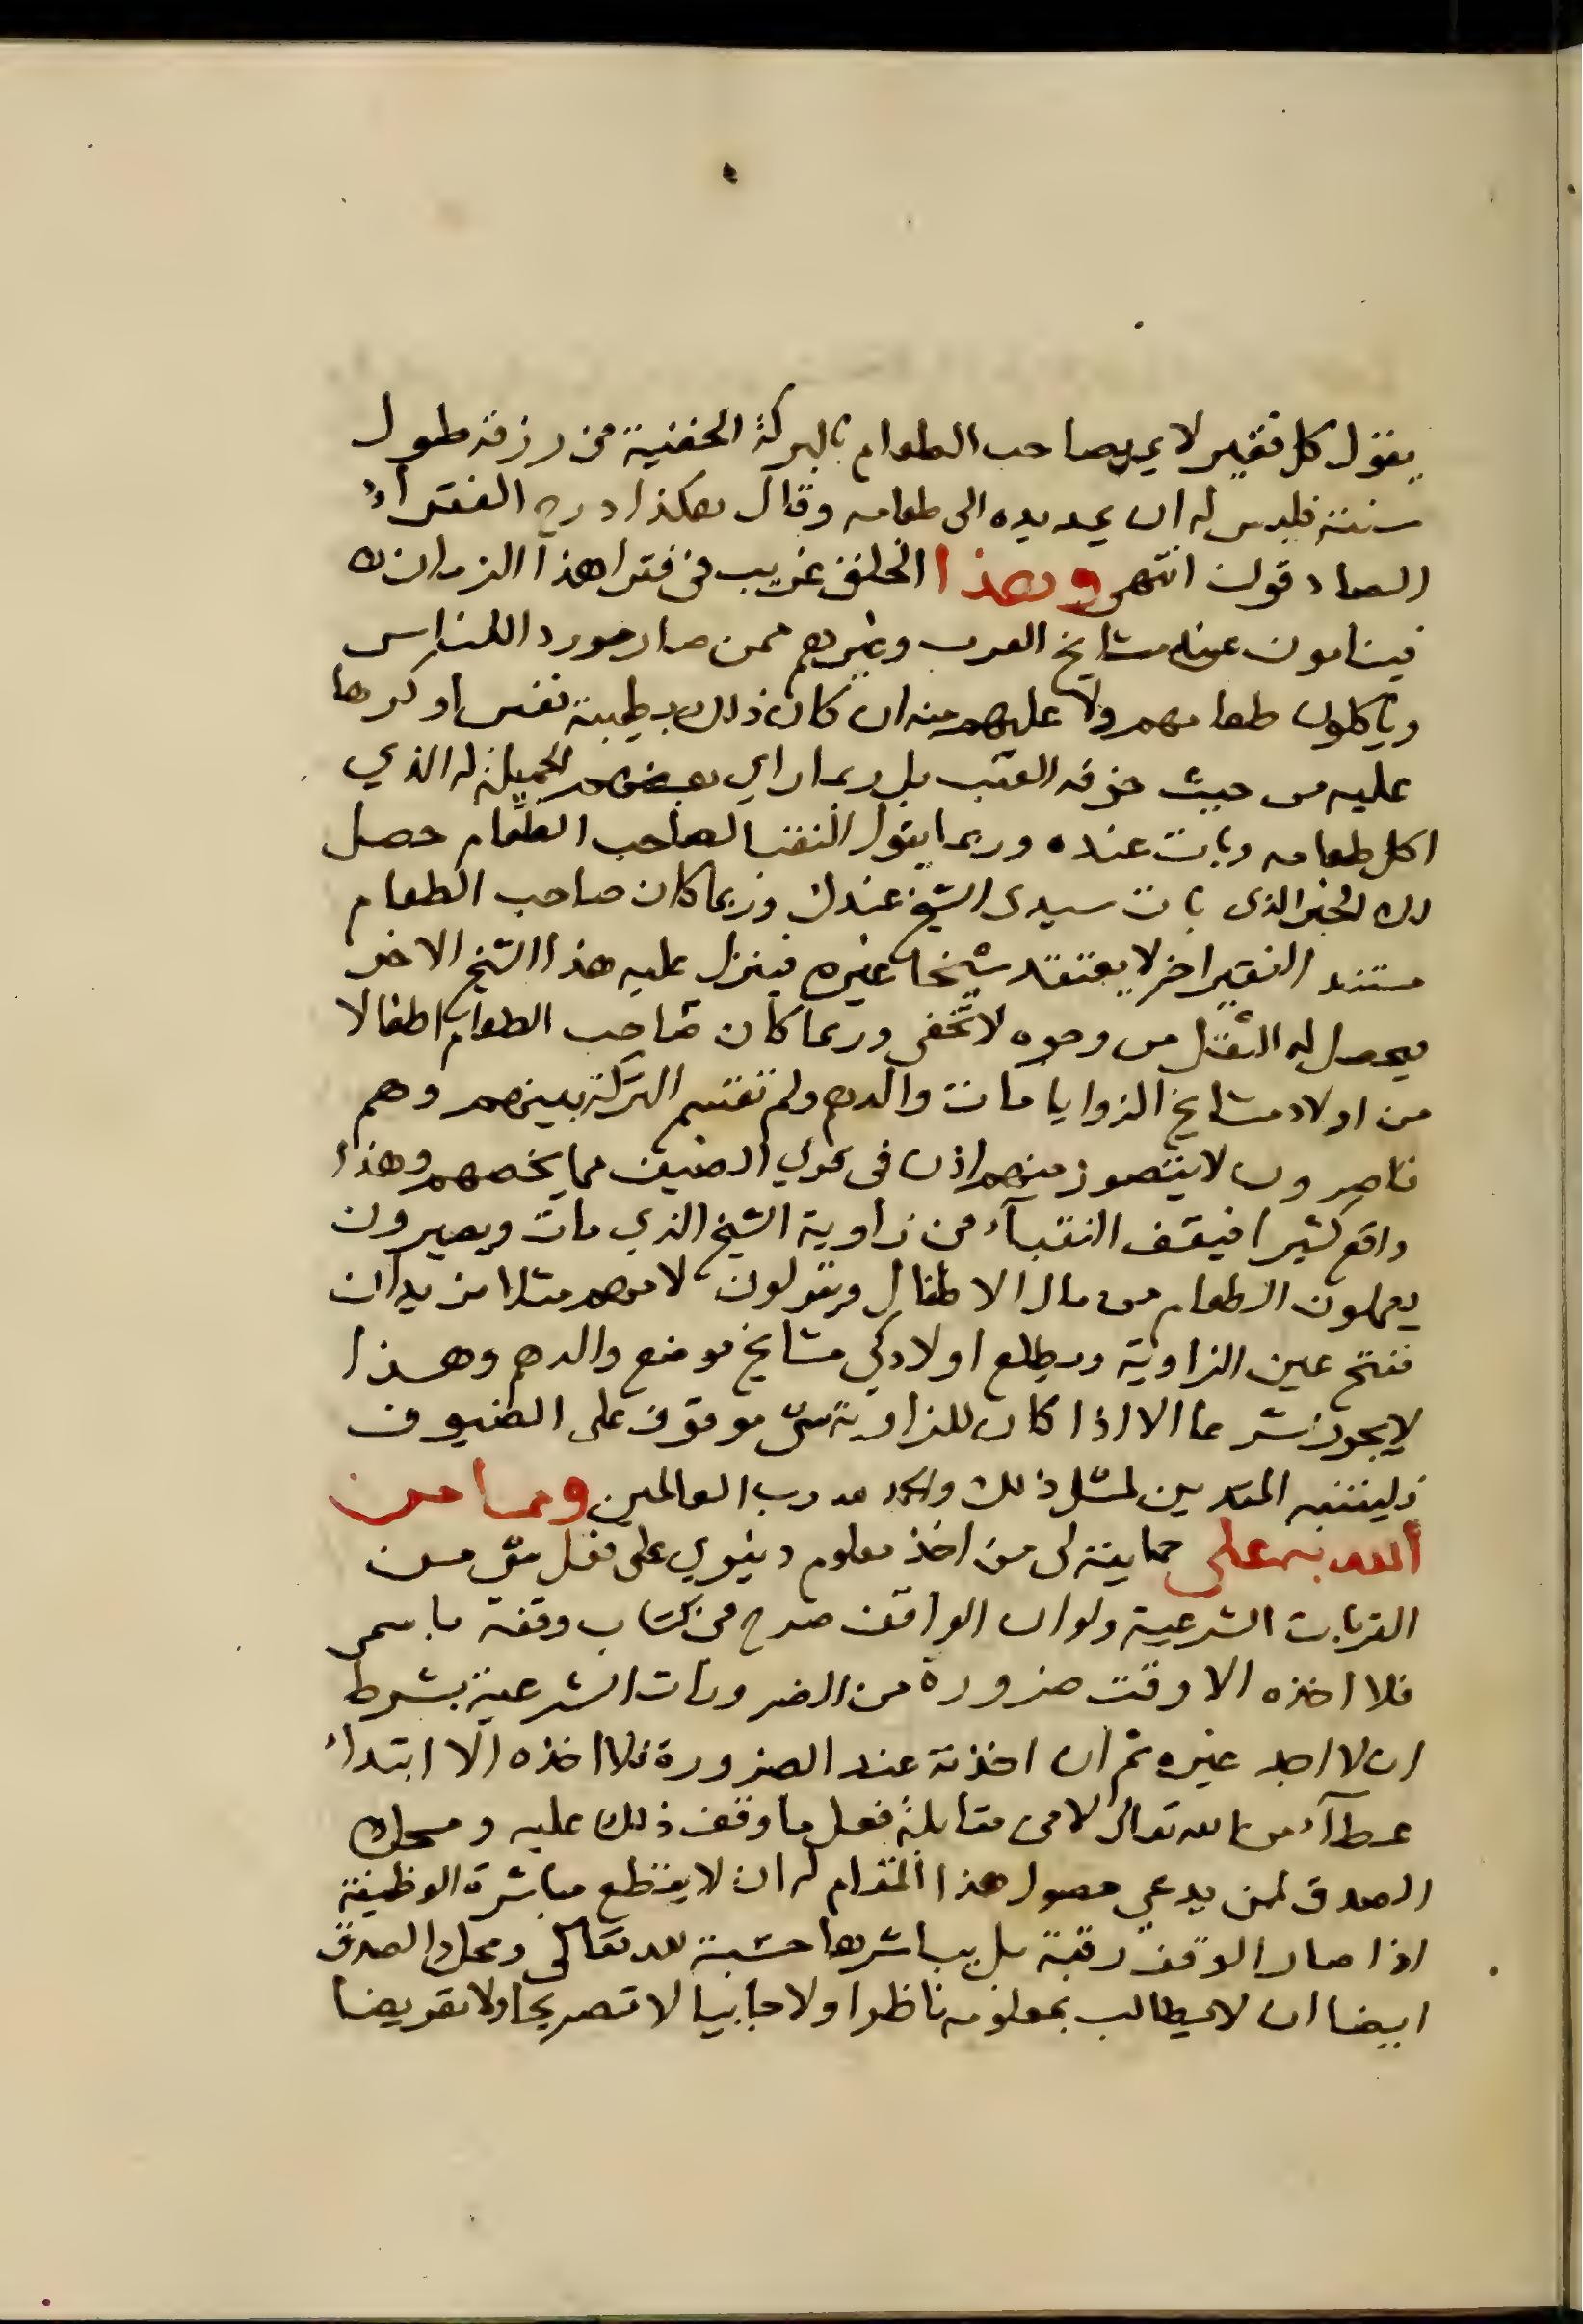 يقول كل فقير لا يمد صاحب الطعام بالبركة الخفية في رزقه طول
سنته فليس له ان يمد يده الى طعامه وقال هكذا درج الفقراء
الصادقون انتهى وهذا الخلق غريب في فقرا هذا الزمان
فينامون عند مشايخ العرب وغيرهم ممن صار موردا للناس
وياكلون طعامهم ولا عليهم منه ان كان ذلك بطيبة نفس او كرها
عليه من حيث خوفه العتب بل ربما راي بعضهم الجميلة له الذي
اكل طعامه وبات عنده وربما يقول النقبا لصاحب الطعام حصل
لك الخير الذي بات سيدي الشيخ عندك وربما كان صاحب الطعام
مستند الفقير اخر لا يعتقد شيخا غيره فينزل عليه هذا الشيخ الاخر
فيحصل له الثقل من وجوه لا تخفى وربما كان صاحب الطعام اطفالا
من اولاد مشايخ الزوايا مات والدهم ولم تقتسم التركة بينهم وهم
قاصرون لا يتصور منهم اذن في الضيف مما يخصهم وهذا
واقع كثيرا فيقف النقباء من زاوية الشيخ الذي مات ويصيرون
يعملون الطعام من مال الاطفال ويقولون لامهم مثلا نريد ان
نفتح عين الزاوية ويطلع اولادكي مشايخ موضع والدهم وهذا
لا يجوز شرعا الا اذا كان للزاوية شي موقوف على الضيوف
فليتنبه المتدين لمثل ذلك والحمد لله رب العالمين ومما من
الله به على حمايته لي من اخذ معلوم دنيوي على فعل شي من
القربات الشرعية ولو ان الواقف صرح في كتاب وقفه باسمي
فلا اخذه الا وقت ضرورة من الضرورات الشرعية بشرط
ان لا اجد غيره ثم ان اخذته عند الضرورة فلا اخذه الا ابتداء
عطاء من الله تعالى لا في مقابلة فعل ما وقف ذلك عليه ومحك
الصدق لمن يدعي حصول هذا المقام له ان لا يقطع مباشرة الوظيفة
اذا صار الوقف رقبة بل يباشرها حسبة لله تعالى ومحك الصدق
ايضا ان لا يطالب بمعلومه ناظرا ولا جابيا لا تصريحا ولا تعريضا